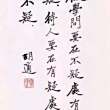 做學問要在不疑處有
疑待人要在有疑處
不疑
胡適